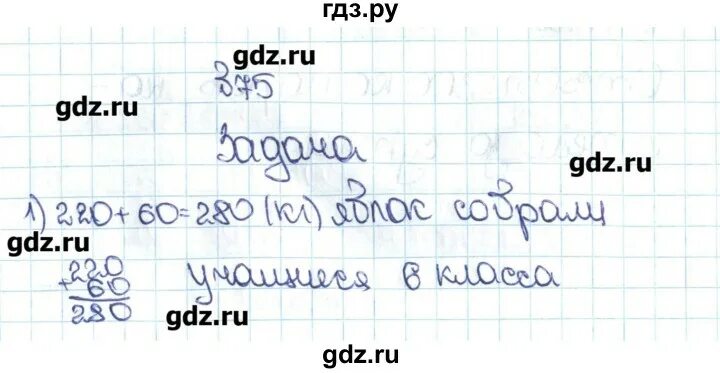 гдз.ру
gdz.ru
375
gdz.ru
Задача
gdz.ru
1) 220+60=280 (кг) яблок собрали
gdz.ru
220
учащиеся 6 класса
+ 60
280
gdz.ru
gdz.ru
gdz.ru